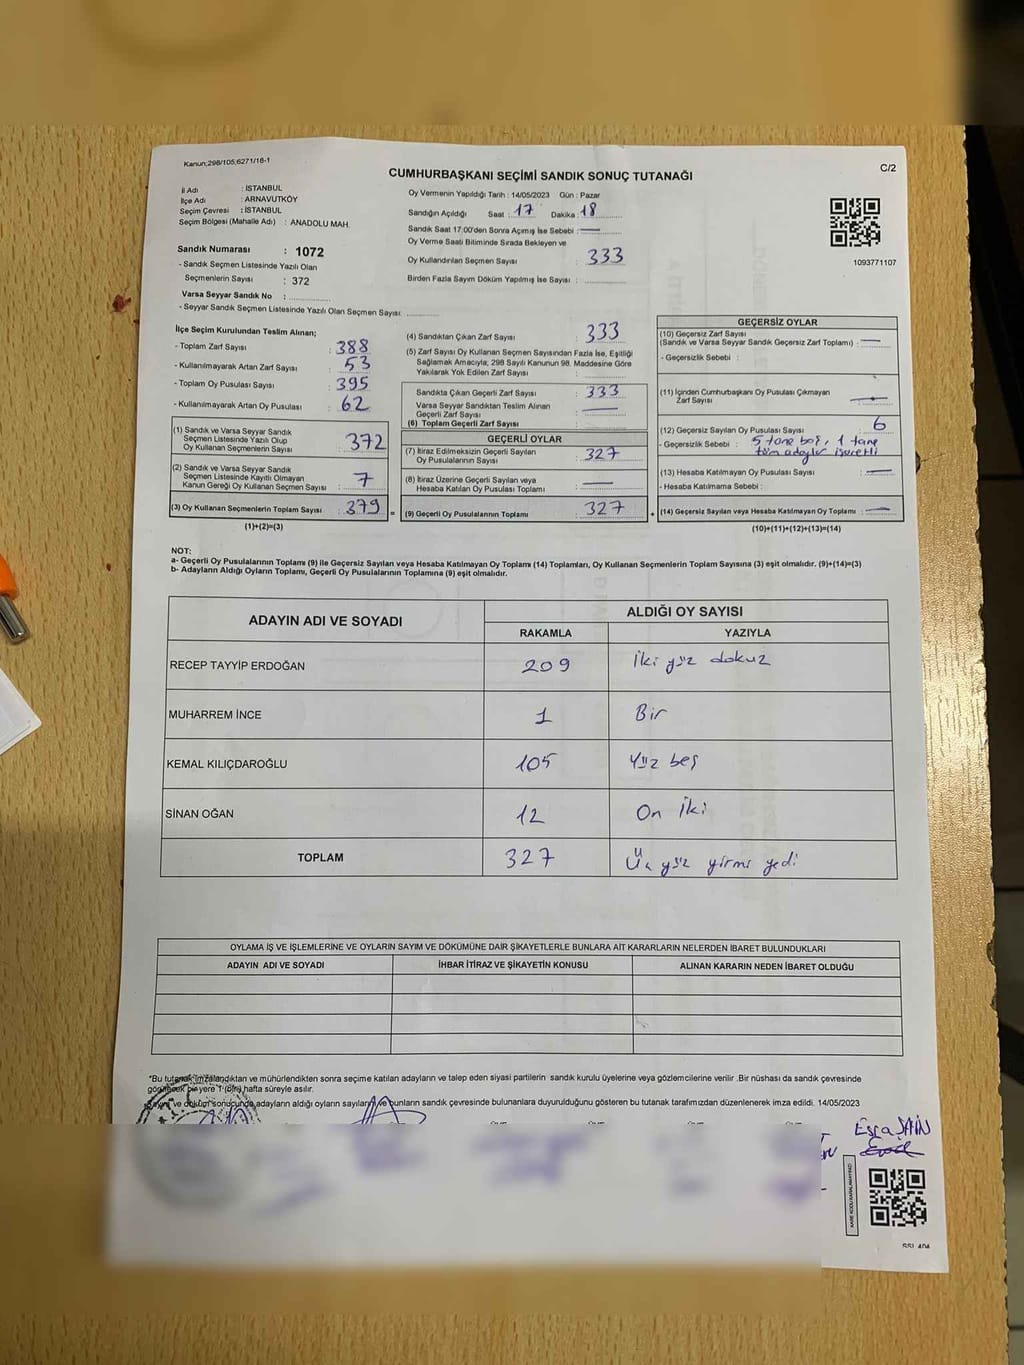 Kanun;298/105;6271/16-1
C/2
CUMHURBAŞKANI SEÇİMİ SANDIK SONUÇ TUTANAĞI
İl Adı : İSTANBUL
İlçe Adı : ARNAVUTKÖY
Seçim Çevresi : İSTANBUL
Seçim Bölgesi (Mahalle Adı) : ANADOLU MAH.
Sandık Numarası : 1072
- Sandık Seçmen Listesinde Yazılı Olan
Seçmenlerin Sayısı : 372
Varsa Seyyar Sandık No :
- Seyyar Sandık Seçmen Listesinde Yazılı Olan Seçmen Sayısı:
Oy Vermenin Yapıldığı Tarih : 14/05/2023 Gün : Pazar
Sandığın Açıldığı Saat : 17 Dakika : 18
Sandık Saat 17:00'den Sonra Açımış İse Sebebi : —
Oy Verme Saati Bitiminde Sırada Bekleyen ve
Oy Kullandırılan Seçmen Sayısı : 333
Birden Fazla Sayım Döküm Yapılmış İse Sayısı :
1093771107
İlçe Seçim Kurulundan Teslim Alınan;
- Toplam Zarf Sayısı : 388
- Kullanılmayarak Artan Zarf Sayısı : 53
- Toplam Oy Pusulası Sayısı : 395
- Kullanılmayarak Artan Oy Pusulası : 62
(1) Sandık ve Varsa Seyyar Sandık
Seçmen Listesinde Yazılı Olup
Oy Kullanan Seçmenlerin Sayısı : 372
(2) Sandık ve Varsa Seyyar Sandık
Seçmen Listesinde Kayıtlı Olmayan
Kanun Gereği Oy Kullanan Seçmen Sayısı : 7
(3) Oy Kullanan Seçmenlerin Toplam Sayısı : 379
(1)+(2)=(3)
(4) Sandıktan Çıkan Zarf Sayısı : 333
(5) Zarf Sayısı Oy Kullanan Seçmen Sayısından Fazla İse, Eşitliği
Sağlamak Amacıyla; 298 Sayılı Kanunun 98. Maddesine Göre
Yakılarak Yok Edilen Zarf Sayısı :
Sandıkta Çıkan Geçerli Zarf Sayısı : 333
Varsa Seyyar Sandıktan Teslim Alınan
Geçerli Zarf Sayısı : —
(6) Toplam Geçerli Zarf Sayısı
GEÇERLİ OYLAR
(7) İtiraz Edilmeksizin Geçerli Sayılan
Oy Pusulalarının Sayısı : 327
(8) İtiraz Üzerine Geçerli Sayılan veya
Hesaba Katılan Oy Pusulası Toplamı : —
= (9) Geçerli Oy Pusulalarının Toplamı : 327
GEÇERSİZ OYLAR
(10) Geçersiz Zarf Sayısı
(Sandık ve Varsa Seyyar Sandık Geçersiz Zarf Toplamı) : —
- Geçersizlik Sebebi :
(11) İçinden Cumhurbaşkanı Oy Pusulası Çıkmayan
Zarf Sayısı : —
(12) Geçersiz Sayılan Oy Pusulası Sayısı : 6
- Geçersizlik Sebebi : 5 tane boş, 1 tane
tüm adaylar işaretli
(13) Hesaba Katılmayan Oy Pusulası Sayısı : —
- Hesaba Katılmama Sebebi :
+ (14) Geçersiz Sayılan veya Hesaba Katılmayan Oy Toplamı : —
(10)+(11)+(12)+(13)=(14)
NOT:
a- Geçerli Oy Pusulalarının Toplamı (9) ile Geçersiz Sayılan veya Hesaba Katılmayan Oy Toplamı (14) Toplamları, Oy Kullanan Seçmenlerin Toplam Sayısına (3) eşit olmalıdır. (9)+(14)=(3)
b- Adayların Aldığı Oyların Toplamı, Geçerli Oy Pusulalarının Toplamına (9) eşit olmalıdır.
ADAYIN ADI VE SOYADI ALDIĞI OY SAYISI
RAKAMLA YAZIYLA
RECEP TAYYİP ERDOĞAN 209 İki yüz dokuz
MUHARREM İNCE 1 Bir
KEMAL KILIÇDAROĞLU 105 Yüz beş
SİNAN OĞAN 12 On İki
TOPLAM 327 Üç yüz yirmi yedi
OYLAMA İŞ VE İŞLEMLERİNE VE OYLARIN SAYIM VE DÖKÜMÜNE DAİR ŞİKAYETLERLE BUNLARA AİT KARARLARIN NELERDEN İBARET BULUNDUKLARI
ADAYIN ADI VE SOYADI İHBAR İTİRAZ VE ŞİKAYETİN KONUSU ALINAN KARARIN NEDEN İBARET OLDUĞU
"Bu tutanak imzalandıktan ve mühürlendikten sonra seçime katılan adayların ve talep eden siyasi partilerin sandık kurulu üyelerine veya gözlemcilerine verilir .Bir nüshası da sandık çevresinde
görülecek bir yere 1 (bir) hafta süreyle asılır.
ve döküm sonucunda adayların aldığı oyların sayıları ve bunların sandık çevresinde bulunanlara duyurulduğunu gösteren bu tutanak tarafımızdan düzenlenerek imza edildi. 14/05/2023
Esra ŞAİN